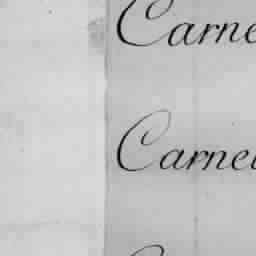 Carne
Carnei